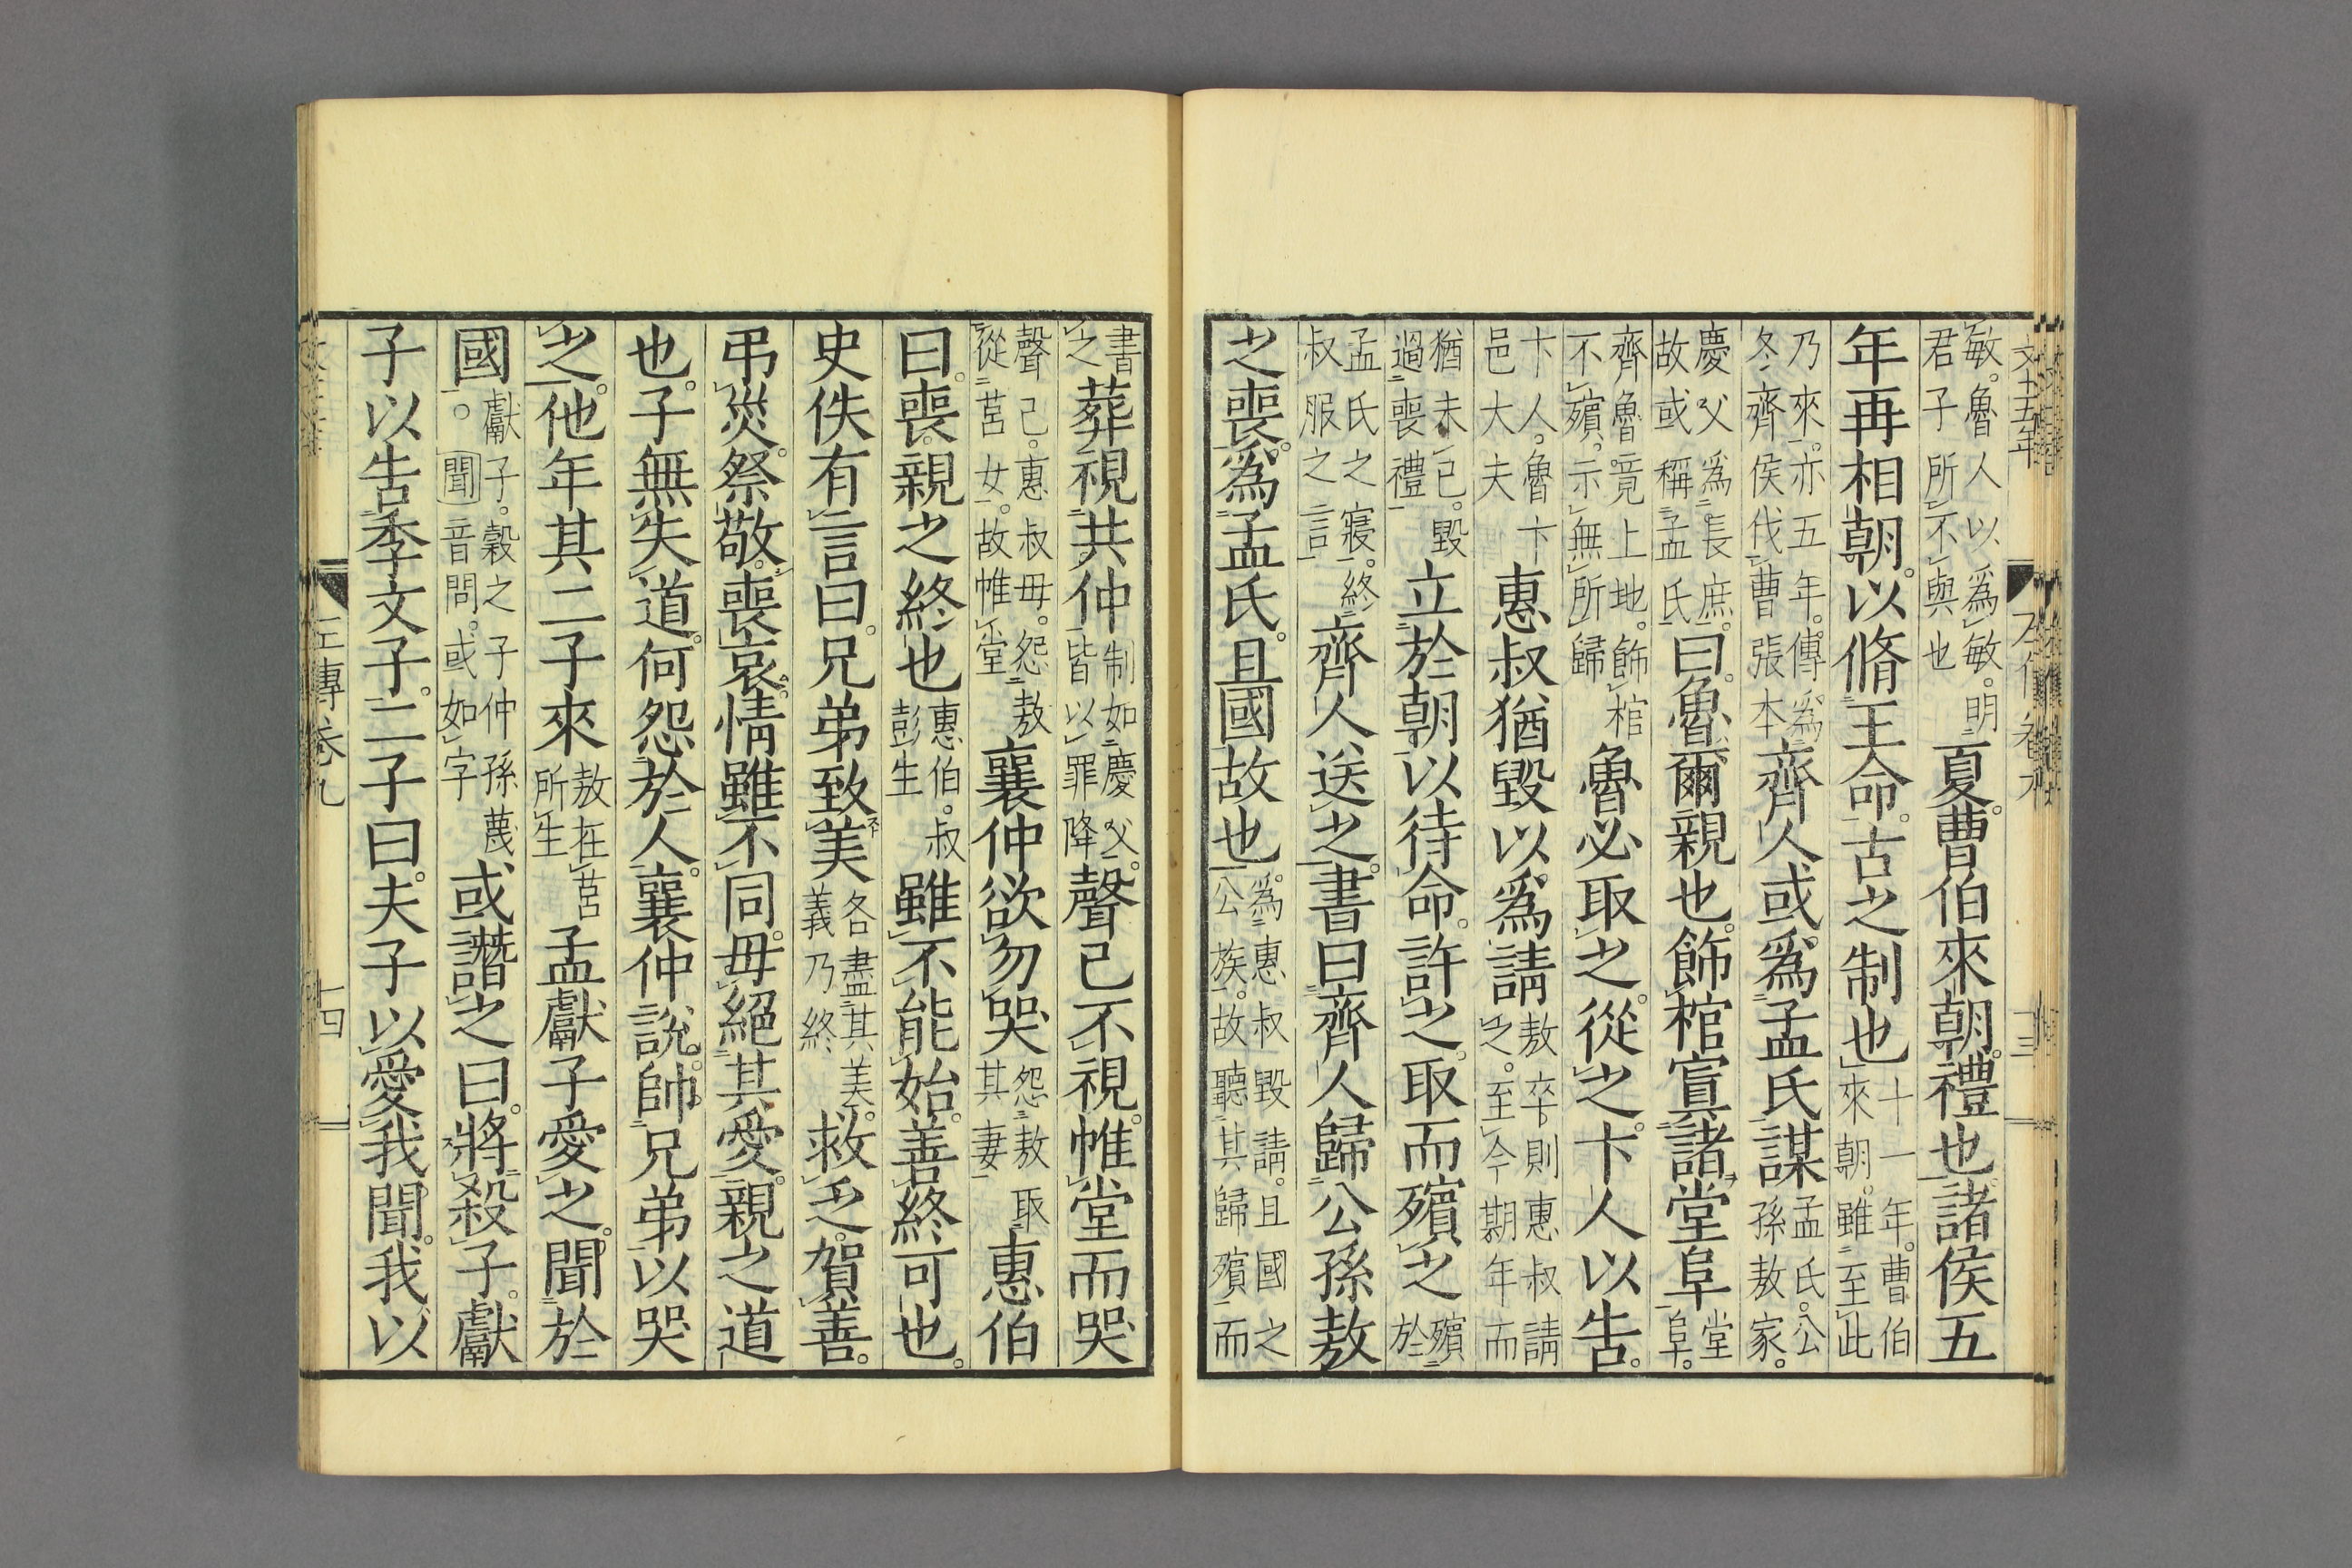 敏。魯人以爲敏。明君子所不與也夏。曹伯來朝。禮也。諸侯五
年再相朝。以脩王命。古之制也十一年。曹伯來朝。雖至此
乃來。亦五年。傳爲冬齊侯伐曹張本齊人或爲孟氏謀孟氏。公孫敖家。
慶父爲長庶。故或稱孟氏曰。魯爾親也。飾棺寘諸堂阜堂阜。
齊魯竟上地。飾棺不殯。示無所歸魯必取之。從之。卞人以告。
卞人。魯卞邑大夫惠叔猶毀以爲請敖卒。則惠叔請之。至今期年而
猶未已。毀過喪禮立於朝以待命。許之。取而殯之殯於
孟氏之寢。終叔服之言齊人送之。書曰。齊人歸公孫敖
之喪。爲孟氏。且國故也爲惠叔毀請。且國之公族。故聽其歸殯而
書之葬視共仲制如慶父。皆以罪降聲己不視。帷堂而哭
聲己。惠叔母。怨敖從莒女。故帷堂襄仲欲勿哭怨敖取其妻惠伯
曰。喪。親之終也惠伯。叔彭生雖不能始。善終可也。
史佚有言曰。兄弟致美各盡其美。義乃終救乏。賀善。
弔災。祭敬。喪哀。情雖不同。毋絕其愛。親之道
也。子無失道。何怨於人。襄仲說。帥兄弟以哭
之。他年其二子來敖在莒所生孟獻子愛之。聞於
國獻子。穀之子仲孫蔑。聞音問。或如字或譖之曰。將殺子。獻
子以告季文子。二子曰。夫子以愛我聞。我以
文十五年
十三
左傳卷九
十四